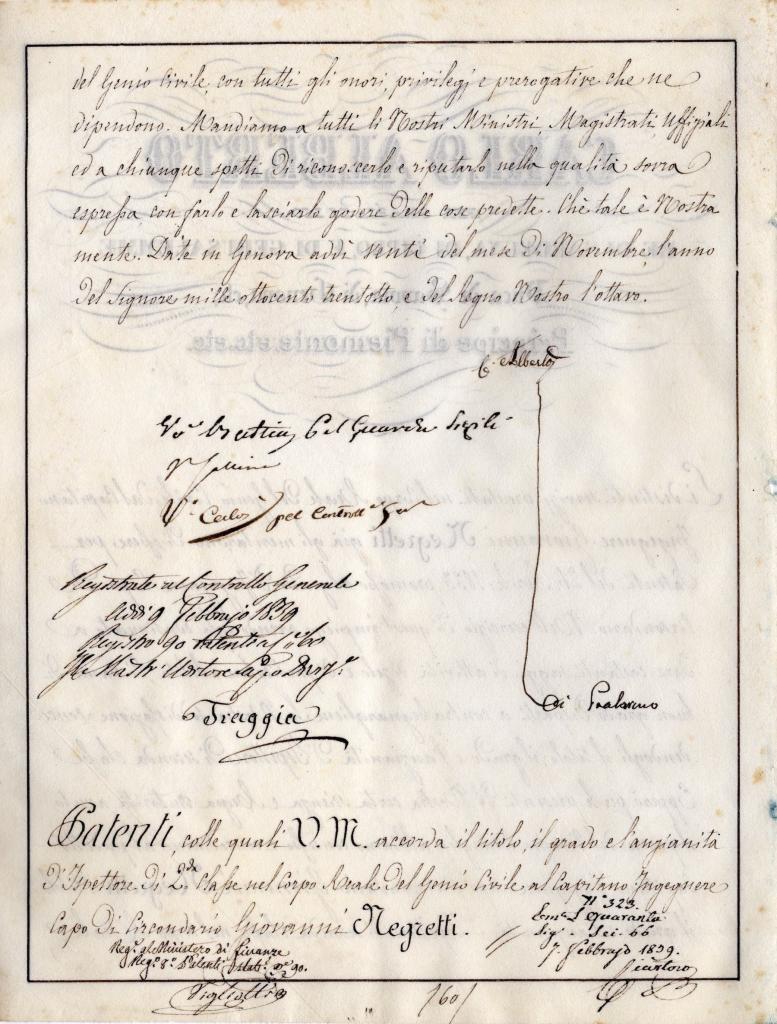 del Genio Civile, con tutti gli onori, privilegj e prerogative che ne
dipendono. Mandiamo a tutti li Nostri Ministri, Magistrati, Uffiziali
ed a chiunque spetti di riconoscerlo e riputarlo nella qualità sovra
espressa con farlo e lasciarlo godere delle cose predette. Chè tale è Nostra
mente. Date in Genova addì venti del mese di Novembre, l'anno
del Signore mille ottocento trentotto, e del Regno Nostro l'ottavo.
C. Alberto
pel Guarda Sigilli
pel Controll.e Gen.
Registrate al Controllo Generale
addì 9 Febbrajo 1839
Registro 90
Traggia
Patenti, colle quali V. M. accorda il titolo, il grado e l'anzianità
d'Ispettore di 2da Classe nel Corpo Reale del Genio Civile al Capitano Ingegnere
Capo di Circondario Giovanni Negretti.
N° 323.
Quaranta
Sig. Sei 66
7. Febbrajo 1839.
Reg. al Ministero di Finanze
Reg. 8° Patenti
/60/